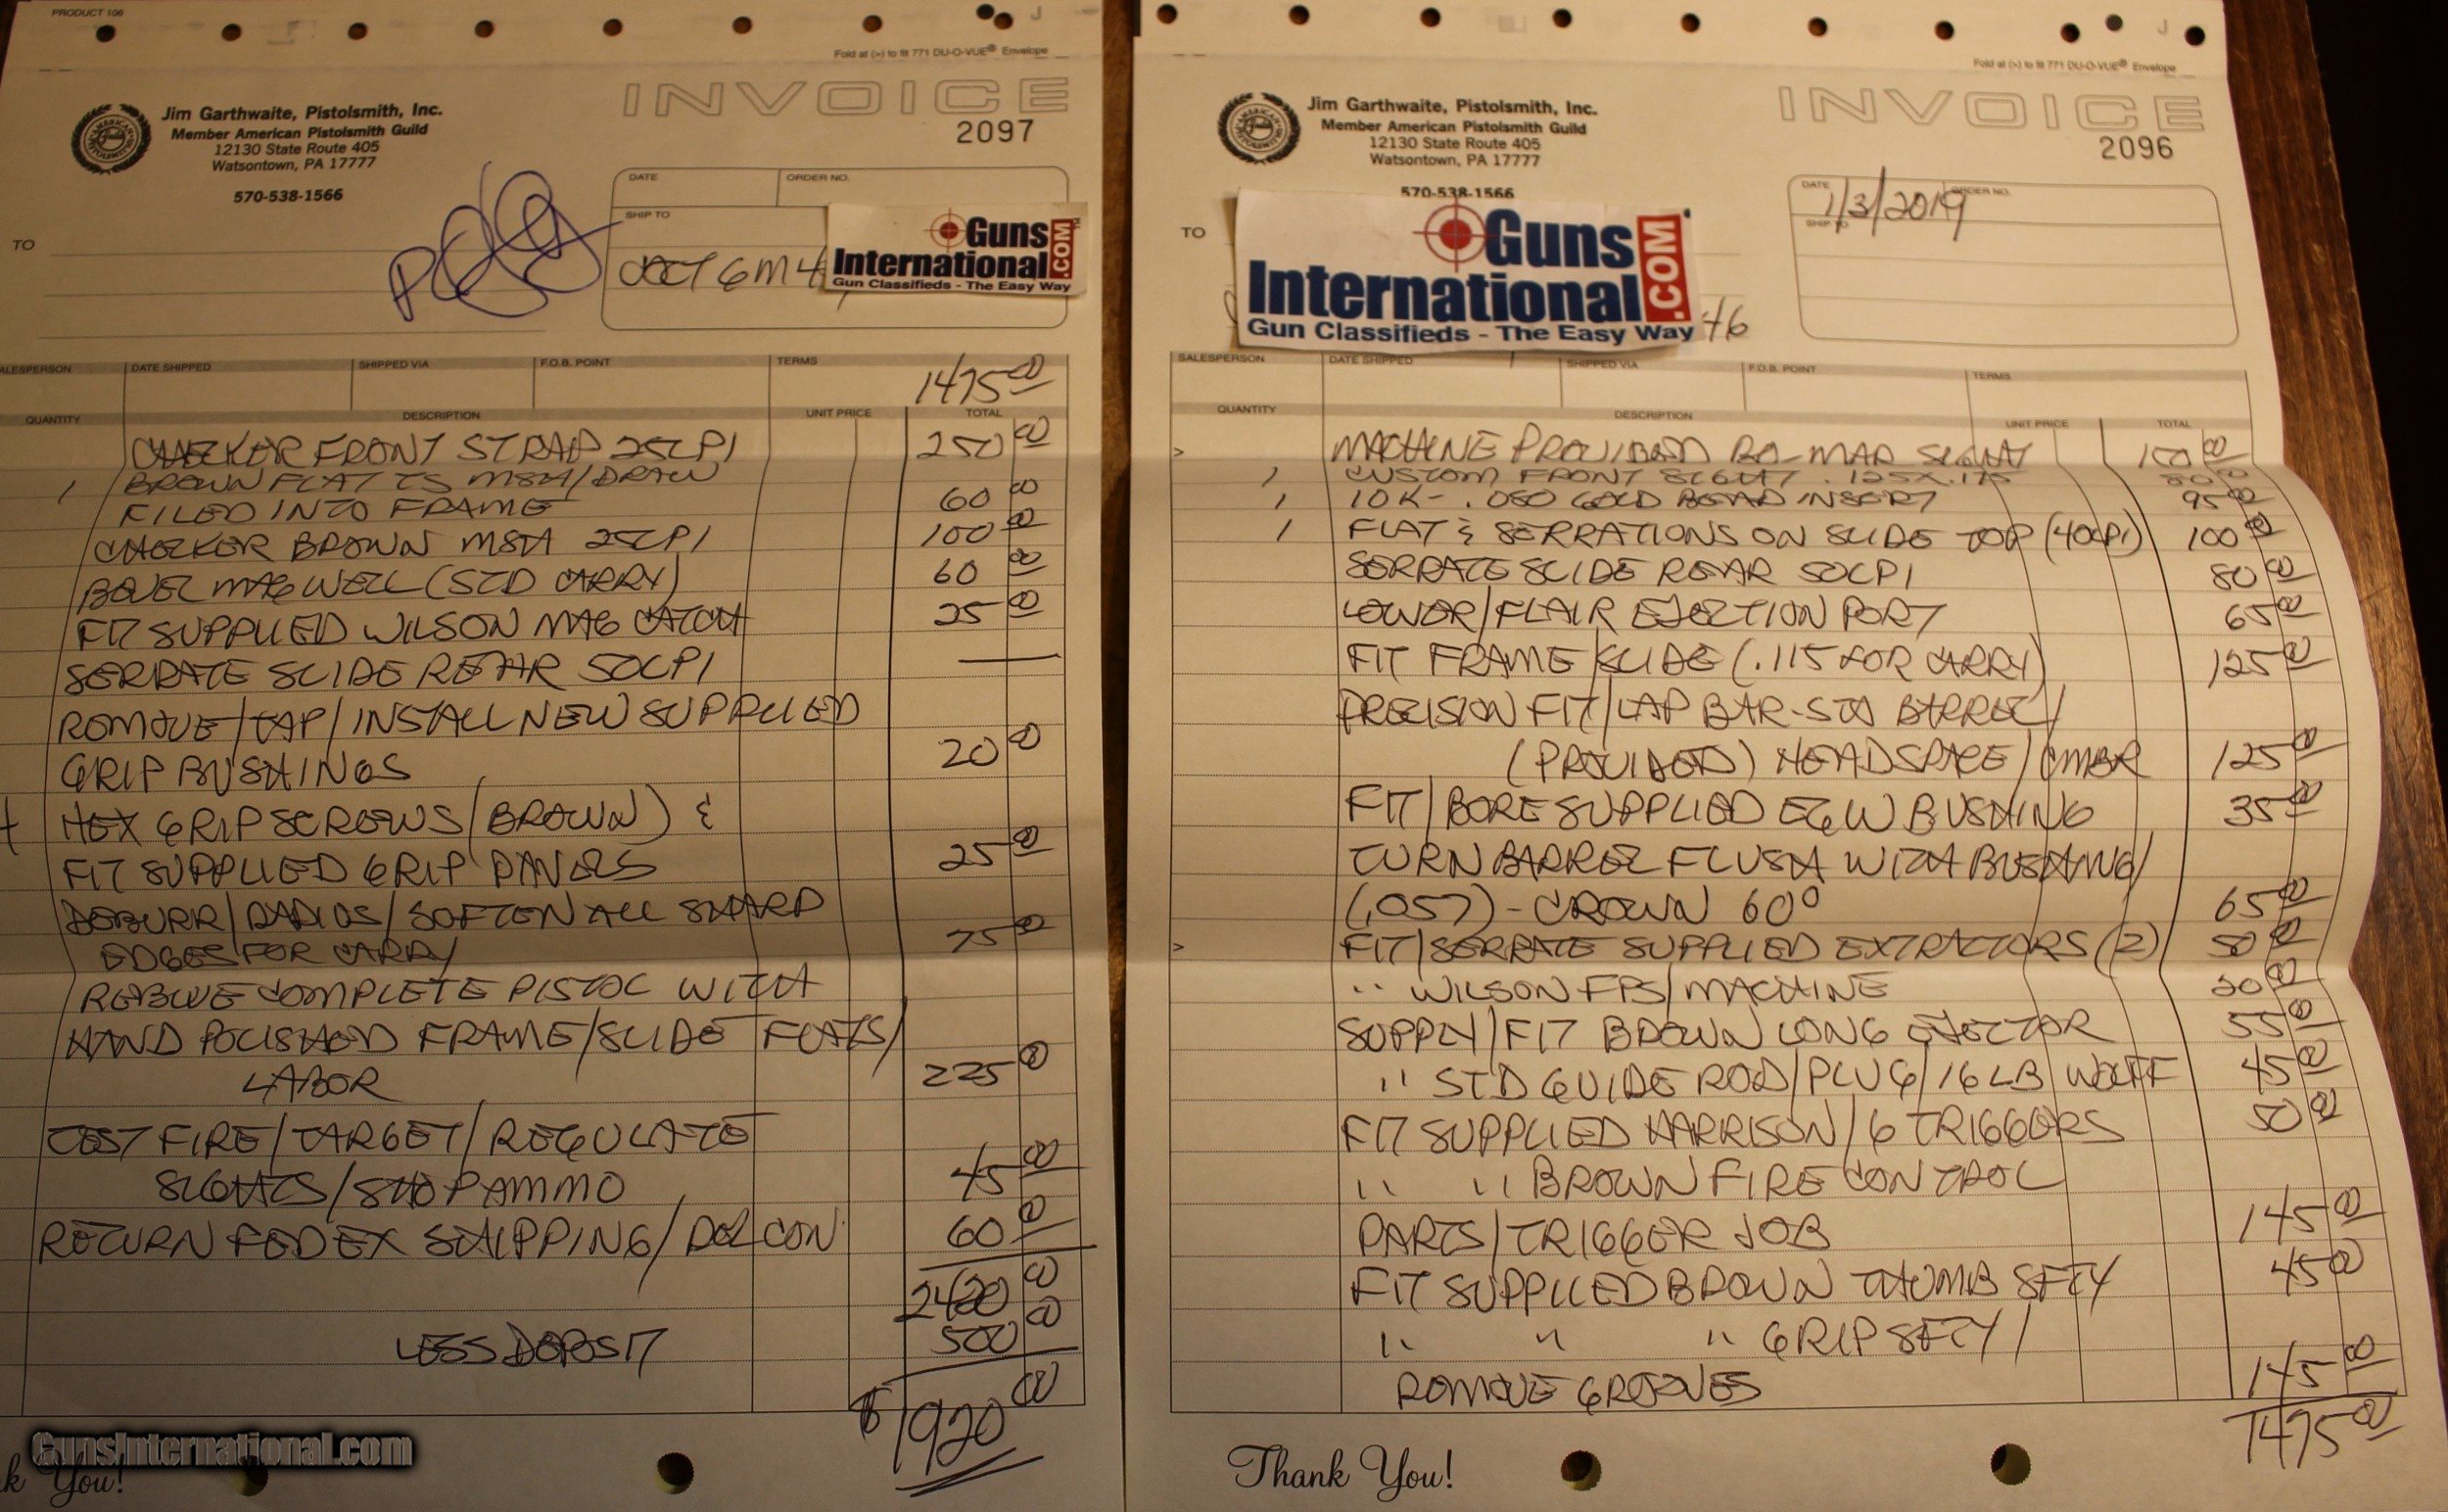 PRODUCT 106
Fold at (>) to fit 771 DU-O-VUE® Envelope
INVOICE
2097
Jim Garthwaite, Pistolsmith, Inc.
Member American Pistolsmith Guild
12130 State Route 405
Watsontown, PA 17777
570-538-1566
DATE
ORDER NO.
SHIP TO
TO
Guns
International.COM
Gun Classifieds - The Easy Way
ALESPERSON DATE SHIPPED SHIPPED VIA F.O.B. POINT TERMS
1475 00
QUANTITY DESCRIPTION UNIT PRICE TOTAL
CHECKER FRONT STRAP 25LPI 250 00
1 BROWN FLAT TS MSH/DRAW
FILED INTO FRAME 60 00
CHECKER BROWN MSH 25LPI 100 00
BEVEL MAG WELL (STD CARRY) 60 00
FIT SUPPLIED WILSON MAG CATCH 25 00
SERRATE SLIDE REAR 50LPI —
REMOVE/TAP/INSTALL NEW SUPPLIED
GRIP BUSHINGS 20 00
HEX GRIP SCREWS (BROWN) &
FIT SUPPLIED GRIP PANELS 25 00
DEBURR/RADIUS/SOFTEN ALL SHARP
EDGES FOR CARRY 75 00
REBLUE COMPLETE PISTOL WITH
HAND POLISHED FRAME/SLIDE FLATS/
LABOR 225 00
TEST FIRE/TARGET/REGULATE
SIGHTS/SHOP AMMO 45 00
RETURN FEDEX SHIPPING/DEL CON 60 00
2420 00
LESS DEPOSIT 500 00
$1920 00
GunsInternational.com
k You!
J
Fold at (>) to fit 771 DU-O-VUE® Envelope
INVOICE
2096
Jim Garthwaite, Pistolsmith, Inc.
Member American Pistolsmith Guild
12130 State Route 405
Watsontown, PA 17777
570-538-1566
DATE
1/3/2019
ORDER NO.
SHIP TO
TO
Guns
International.COM
Gun Classifieds - The Easy Way
46
SALESPERSON DATE SHIPPED SHIPPED VIA F.O.B. POINT TERMS
QUANTITY DESCRIPTION UNIT PRICE TOTAL
MACHINE PROVIDED BO-MAR SIGHT 00
1 CUSTOM FRONT SIGHT .125X.175
1 10K - .060 GOLD BEAD INSERT 95 00
1 FLAT & SERRATIONS ON SLIDE TOP (40LPI) 100 00
SERRATE SLIDE REAR 50LPI 80 00
LOWER/FLAIR EJECTION PORT 65 00
FIT FRAME/SLIDE (.115 FOR CARRY) 125 00
PRECISION FIT/LAP BAR-STO BARREL/
(PROVIDED) HEADSPACE/CMBR 125 00
FIT/BORE SUPPLIED EGW BUSHING 35 00
TURN BARREL FLUSH WITH BUSHING/
(.057) - CROWN 60° 65 00
FIT/SERRATE SUPPLIED EXTRACTORS (2) 50 00
" WILSON FPS/MACHINE 00
SUPPLY/FIT BROWN LONG EJECTOR 55 00
" STD GUIDE ROD/PLUG/16LB WOLFF 45 00
FIT SUPPLIED HARRISON/G TRIGGERS 50 00
" " BROWN FIRE CONTROL
PARTS/TRIGGER JOB 145 00
FIT SUPPLIED BROWN THUMB SFTY 45 00
" " " GRIP SFTY/
REMOVE GROOVES 145 00
1475 00
Thank You!